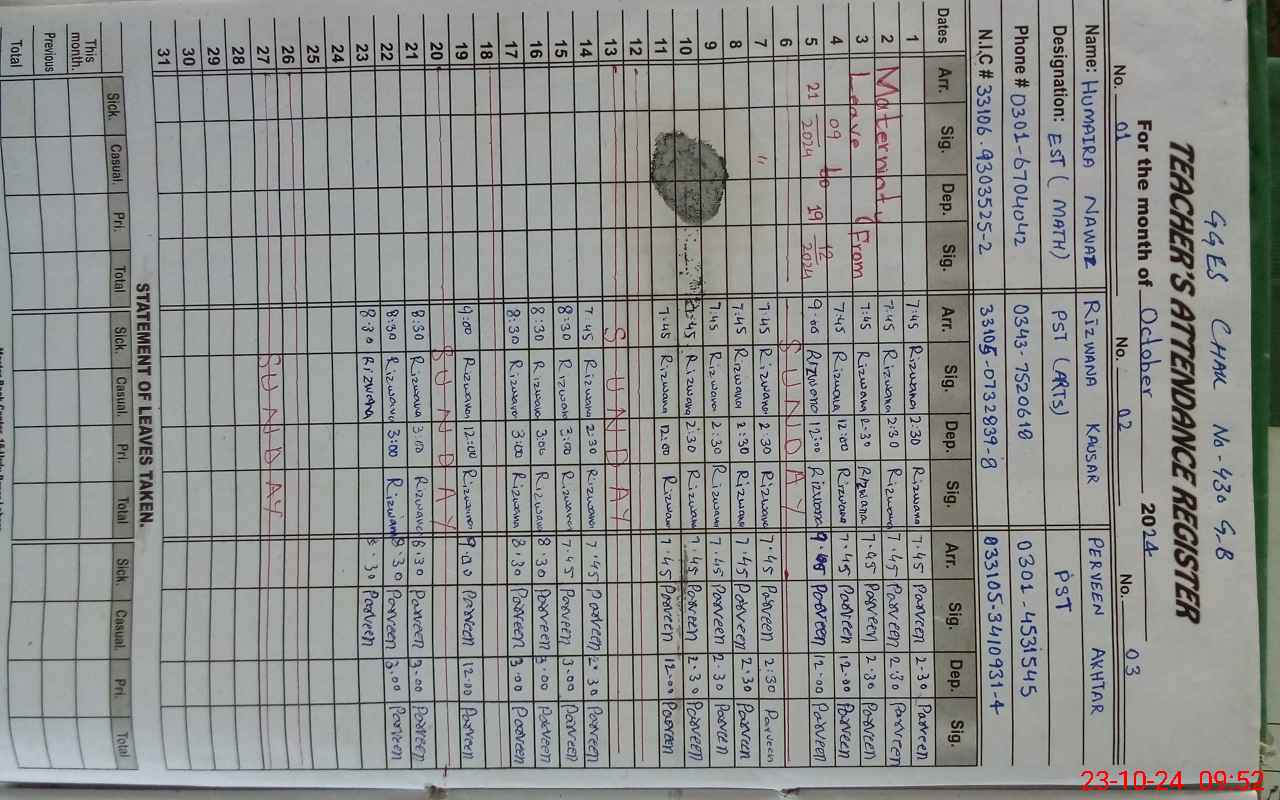 GGES CHAK No-430 G.B
TEACHER'S ATTENDANCE REGISTER
For the month of October 2024
No. 01 No. 02 No. 03
Name: HUMAIRA NAWAZ RIZWANA KAUSAR PERVEEN AKHTAR
Designation: EST (MATH) PST (ARTs) PST
Phone # 0301-6704042 0343-7520618 0301-4531545
N.I.C # 33106-9303525-2 33105-0732839-8 033105-3410931-4
Dates Arr. Sig. Dep. Sig. Arr. Sig. Dep. Sig. Arr. Sig. Dep. Sig.
1 7:45 Rizwana 2:30 Rizwana 7.45 Parveen 2.30 Parveen
2 Maternity 7:45 Rizwana 2:30 Rizwana 7.45 Parveen 2.30 Parveen
3 Leave (From 7:45 Rizwana 2:30 Rizwana 7.45 Parveen 2.30 Parveen
4 7:45 Rizwana 12:00 Rizwana 7.45 Parveen 12.00 Parveen
5 21/09/2024 to 19/12/2024 9:00 Rizwana 12:00 Rizwana Parveen 12.00 Parveen
6 SUNDAY
7 " 7:45 Rizwana 2:30 Rizwana 7.45 Parveen 2:30 Parveen
8 7:45 Rizwana 2:30 Rizwana 7.45 Parveen 2.30 Parveen
9 7:45 Rizwana 2:30 Rizwana 7.45 Parveen 2.30 Parveen
10 7:45 Rizwana 2:30 Rizwana 7.45 Parveen 2.30 Parveen
11 7:45 Rizwana 12:00 Rizwana 7.45 Parveen 12.00 Parveen
12
13 SUNDAY
14 7:45 Rizwana 2:30 Rizwana 7.45 Parveen 2.30 Parveen
15 8:30 Rizwana 3:00 Rizwana 7.45 Parveen 3.00 Parveen
16 8:30 Rizwana 3:00 Rizwana 8.30 Parveen 3.00 Parveen
17 8:30 Rizwana 3:00 Rizwana 8.30 Parveen 3.00 Parveen
18
19 9:00 Rizwana 12:00 Rizwana 9.00 Parveen 12.00 Parveen
20 SUNDAY
21 8:30 Rizwana 3:00 Rizwana 8.30 Parveen 3.00 Parveen
22 8:30 Rizwana 3:00 Rizwana 8.30 Parveen 3.00 Parveen
23 8:30 Rizwana 8.30 Parveen
24
25
26
27 SUNDAY
28
29
30
31
STATEMENT OF LEAVES TAKEN.
Sick. Casual. Pri. Total Sick. Casual. Pri. Total Sick. Casual. Pri. Total
This month.
Previous
Total
23-10-24 09:52